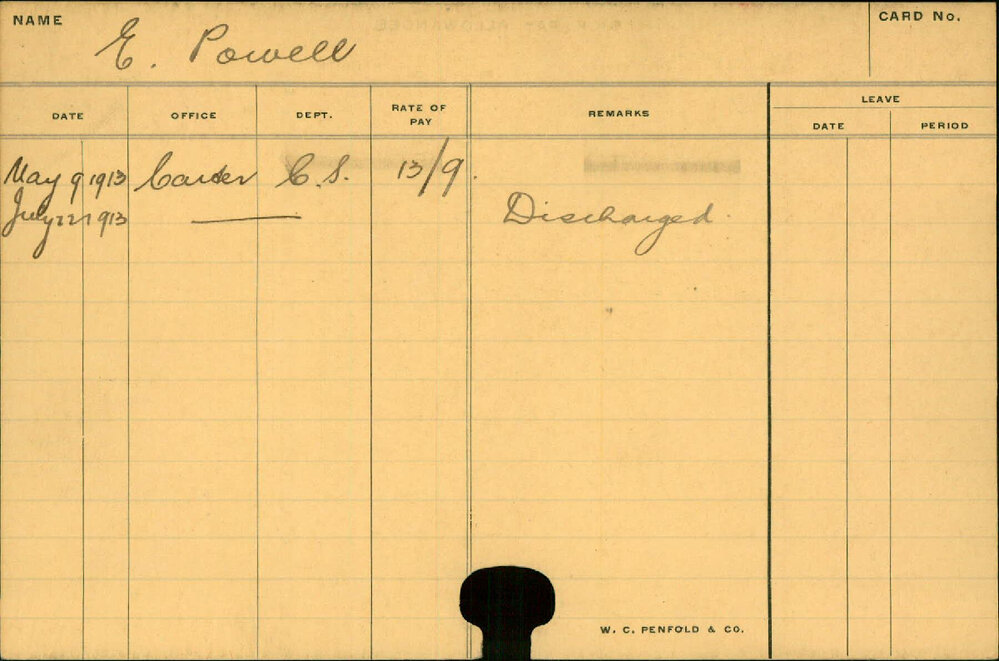 NAME
E. Powell
CARD No.
DATE OFFICE DEPT. RATE OF PAY REMARKS LEAVE
DATE PERIOD
May 9 1913 Carter C.S. 13/9.
July 22 1913 Discharged.
W. C. PENFOLD & CO.